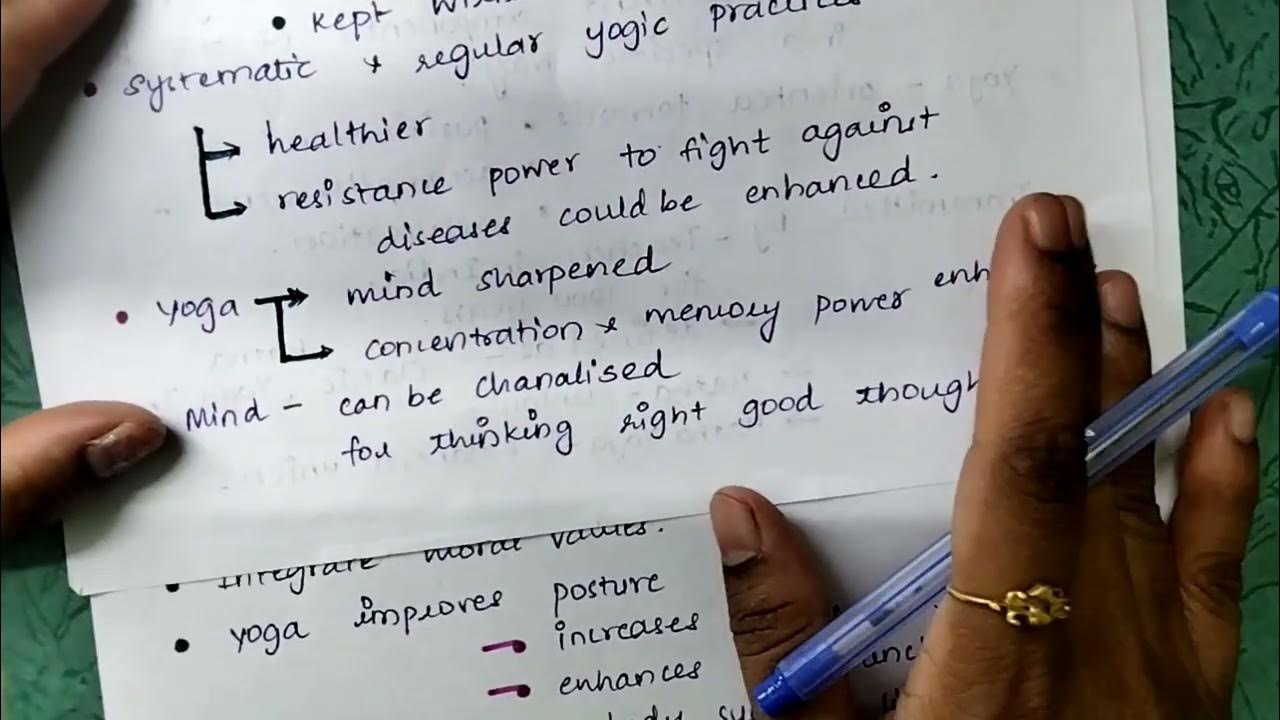 • Kept
• systematic & regular yogic
healthier
resistance power to fight against
diseases could be enhanced.
• yoga mind sharpened
concentration & memory power enh
Mind - can be chanalised
for thinking right good though
• Integrate moral values.
• yoga improves posture
increases
enhances